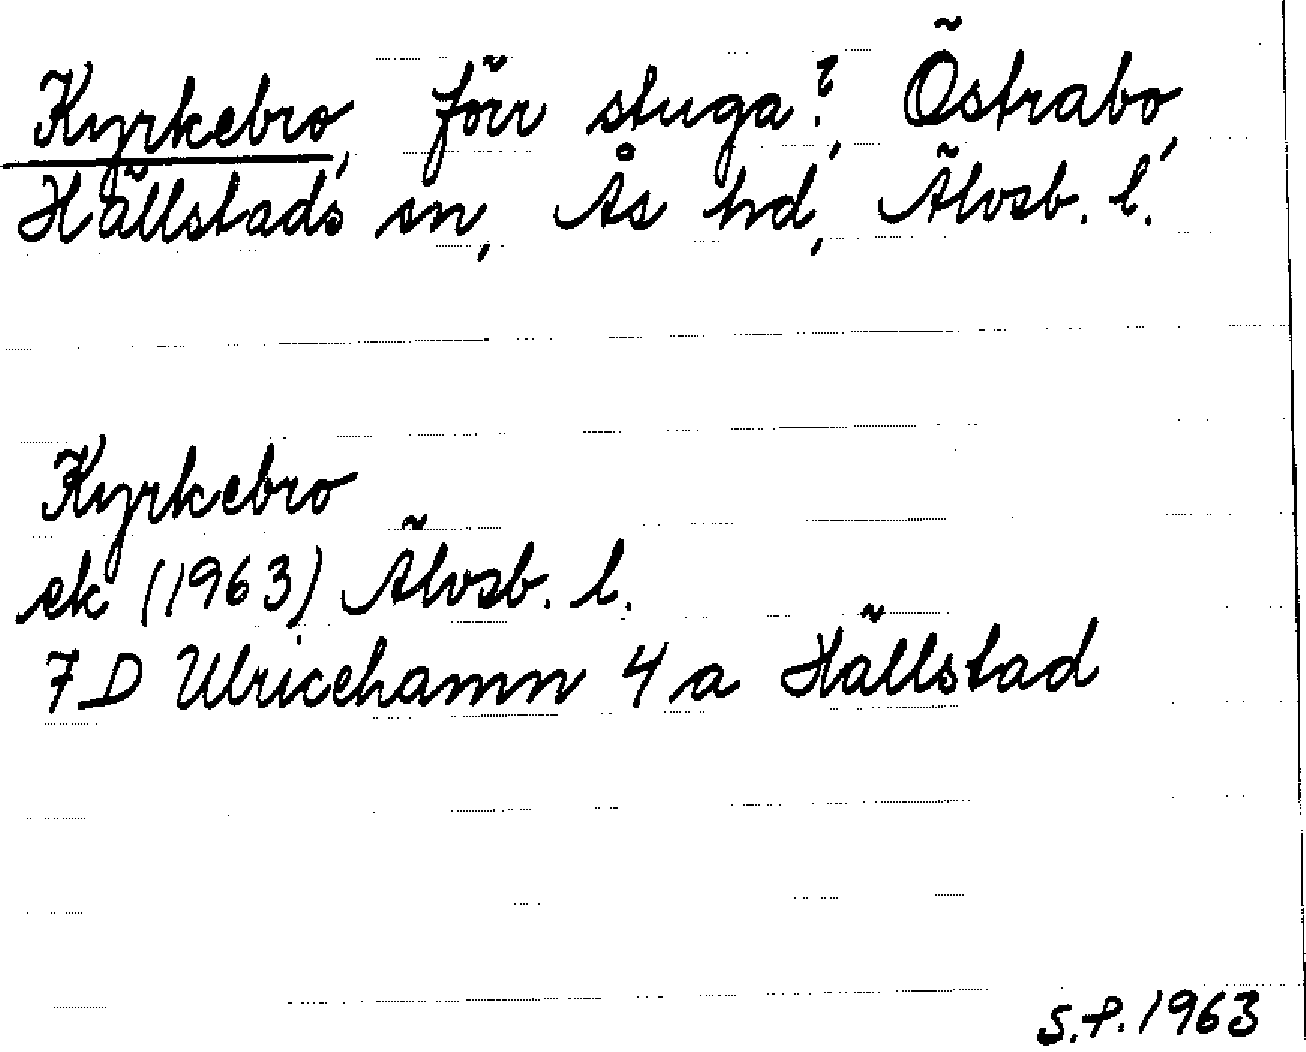 Kyrkebro, förr stuga?, Östrabo,
Hällstads sn, Ås hd, Älvsb. l.
Kyrkebro
ek (1963) Älvsb. l.
7 D Ulricehamn 4 a Hällstad
S.P. 1963